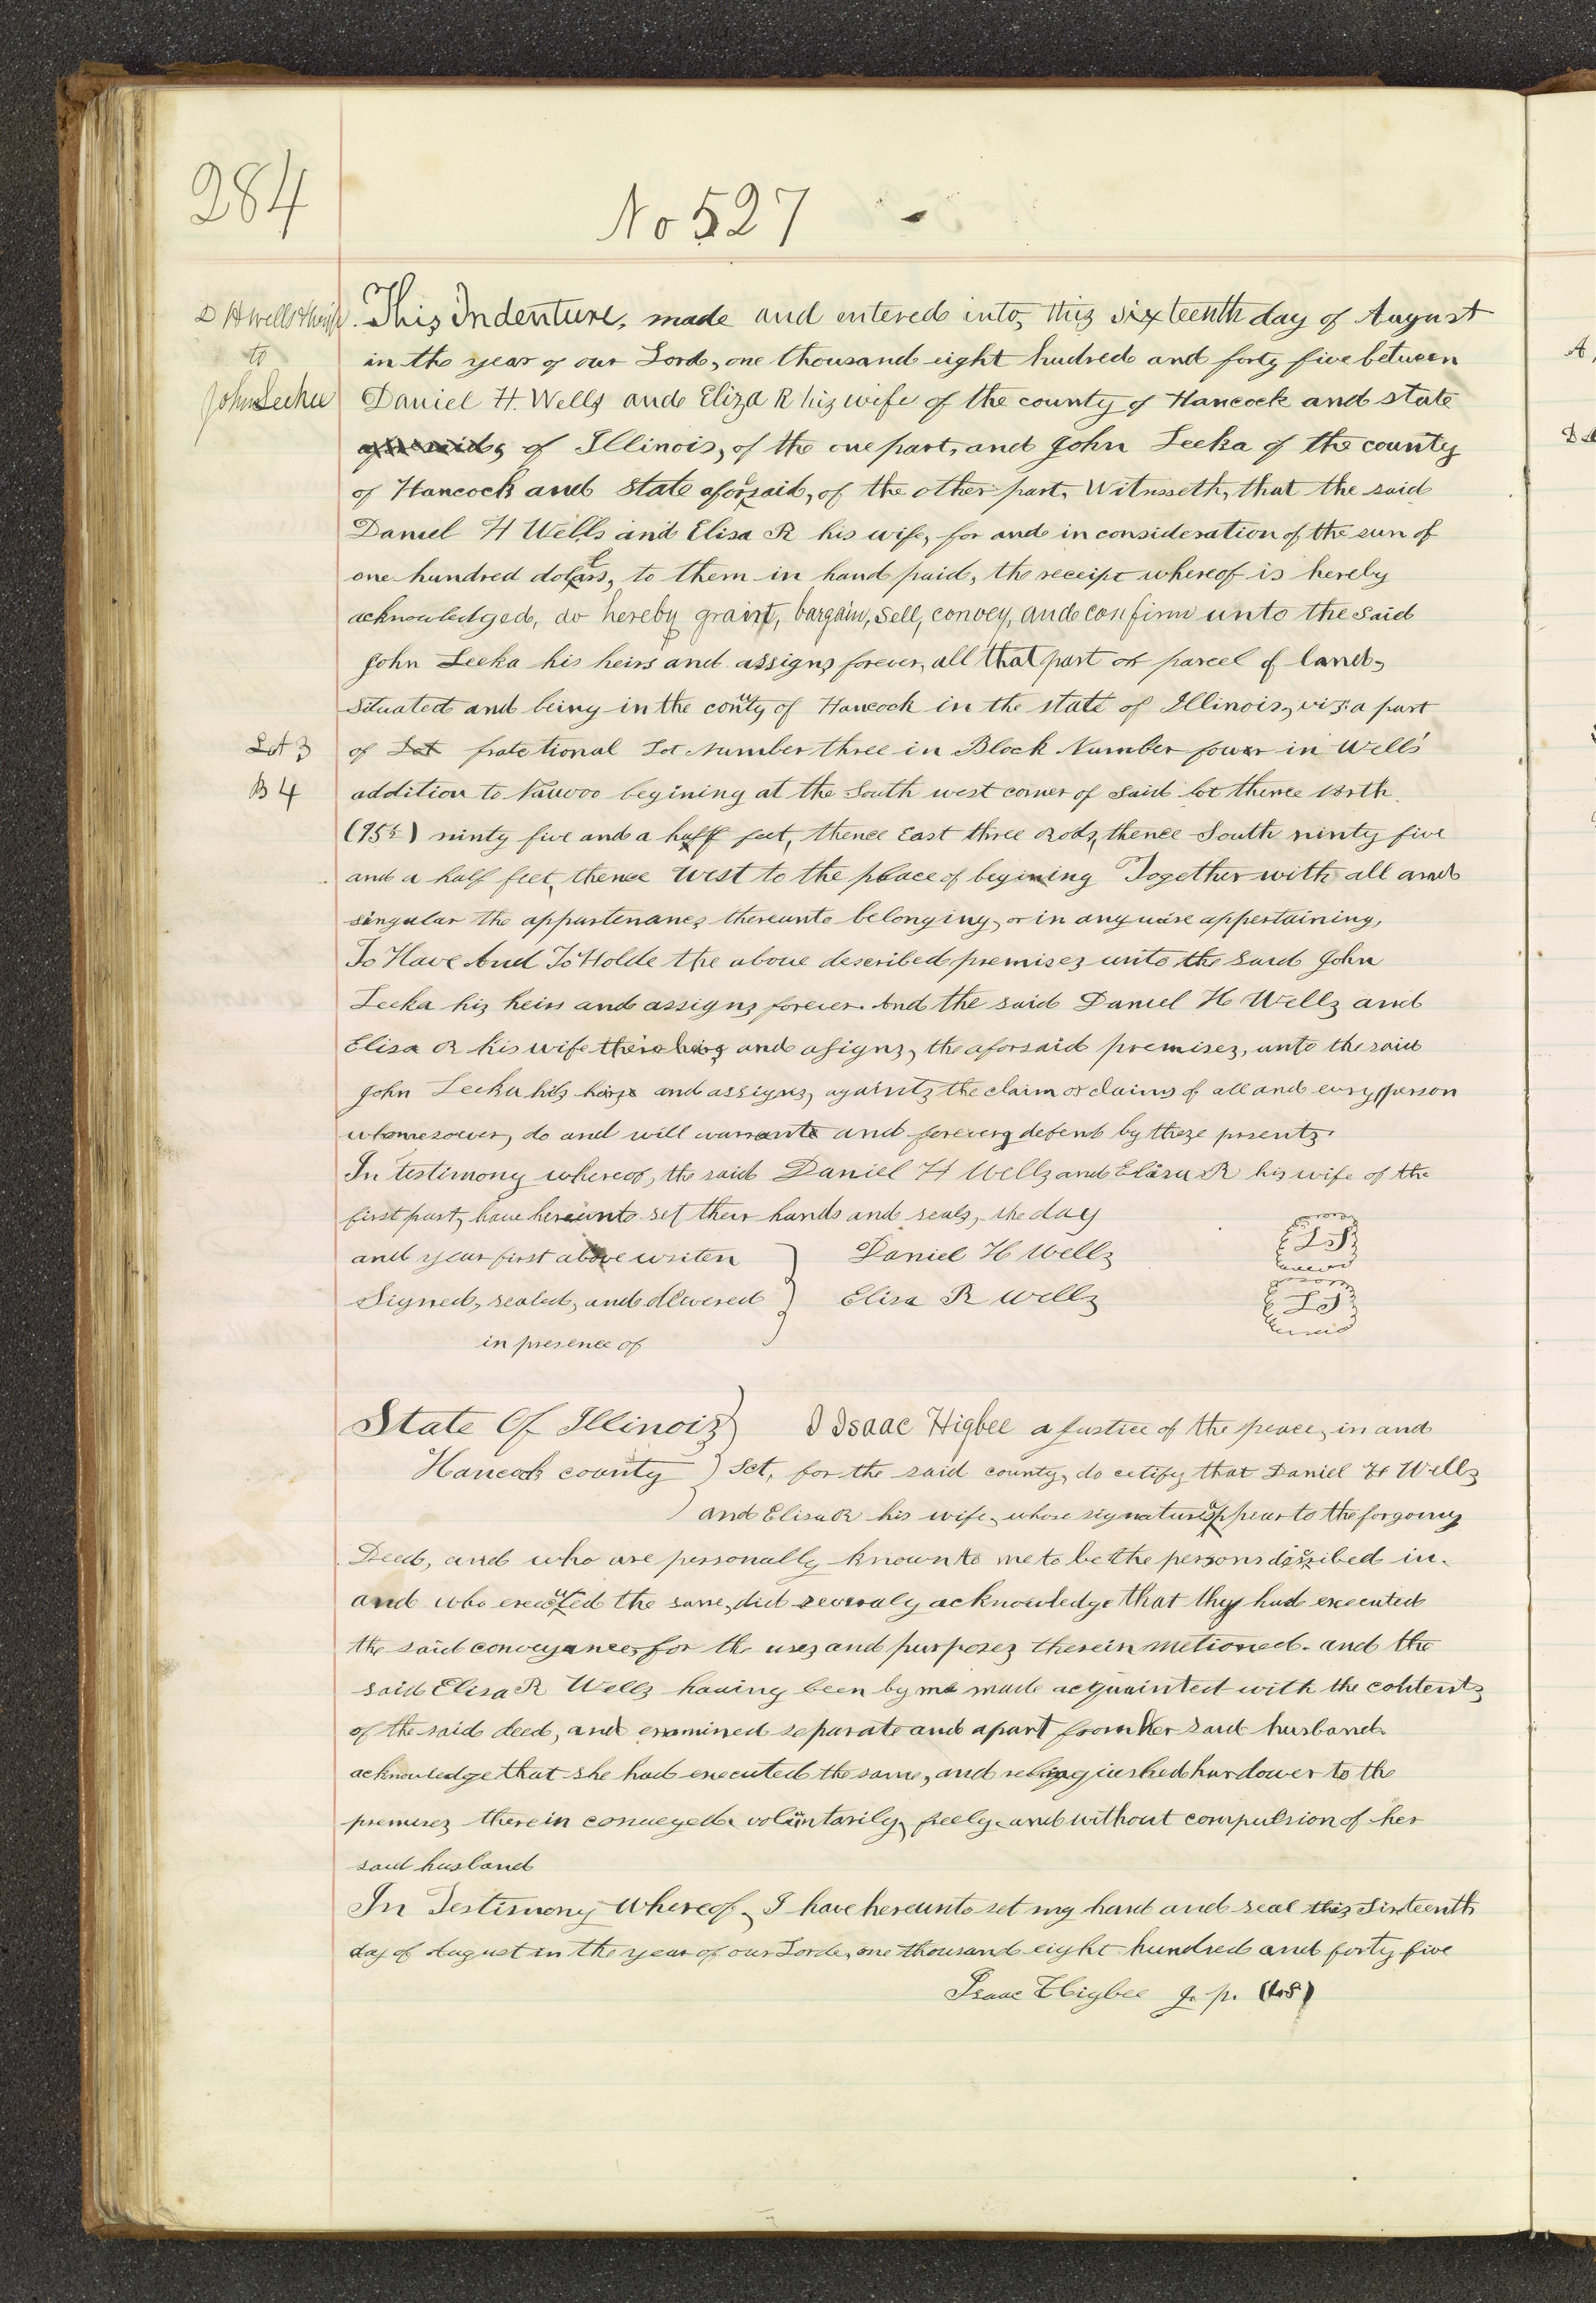 284
No 527 -
D H wells & wife
to
John Leeka
This Indenture, made and entered into, this sixteenth day of August
in the year of our Lord, one thousand eight hudred and forty five between
Daniel H. Wells and Eliza R his wife of the county of Hancock and state
of Illinois, of the one part, and John Leeka of the county
of Hancock and state aforsaid, of the other part, Witnesseth, that the said
Daniel H Wells and Elisa R his wife, for and in consideration of the sun of
one hundred dollars, to them in hand paid, the receipt whereof is hereby
acknowledged, do hereby graint, bargain, sell, convey, and confirm unto the said
John Leeka his heirs and assigns forever, all that part or parcel of land,
situated and being in the county of Hancock in the state of Illinois, viz: a part
Lot 3
of Lot fratctional Lot number three in Block Number four in Wells'
B 4
addition to Nauvoo begining at the South west corner of said lot thence North
(95½) ninty five and a half feet, thence East three Rods, thence South ninty five
and a half feet, thence West to the place of begining Together with all and
singular the appurtenances thereunto belonging, or in any wise appertaining,
To Have And To Holde the above described premises unto the said John
Leeka his heirs and assigns forever. And the said Daniel H Wells and
Elisa R his wife theire heirs and asigns, the aforsaid premises, unto the said
John Leeka his heirs and assigns, againts the claim or claims of all and evry person
whomesoever, do and will warrante and forever defend by these prsents.
In testimony whereof, the said Daniel H Wells and Elisa R his wife of the
first part, have hereunto set their hands and seals, the day
and year first above writen } Daniel H Wells LS
Signed, sealed, and delivered } Elisa R Wells LS
in presence of
State Of Illinois } I Isaac Higbee a Justice of the peace, in and
Hancock county } Sct, for the said county, do cetify that Daniel H Wells
and Elisa R his wife, whose signatures appear to the forgoing
Deed, and who are personally known to me to be the persons discribed in.
and who executed the same, did severaly acknowledge that they had executed
the said conveyance, for the uses and purposes therein metioned. and the
said Elisa R Wells having been by me made acquainted with the contents
of the said deed, and examined separate and apart from her said husband.
acknowledge that she had executed the same, and relinquished hur dower to the
premises therein conveyed, voluntarily, freely, and without compulsion of her
said husband
In Testimony Whereof, I have hereunto set my hand and seal this Sixteenth
day of August in the year of our Lorde, one thousand eight hundred and forty five
Isaac Higbee J. p. (LS)